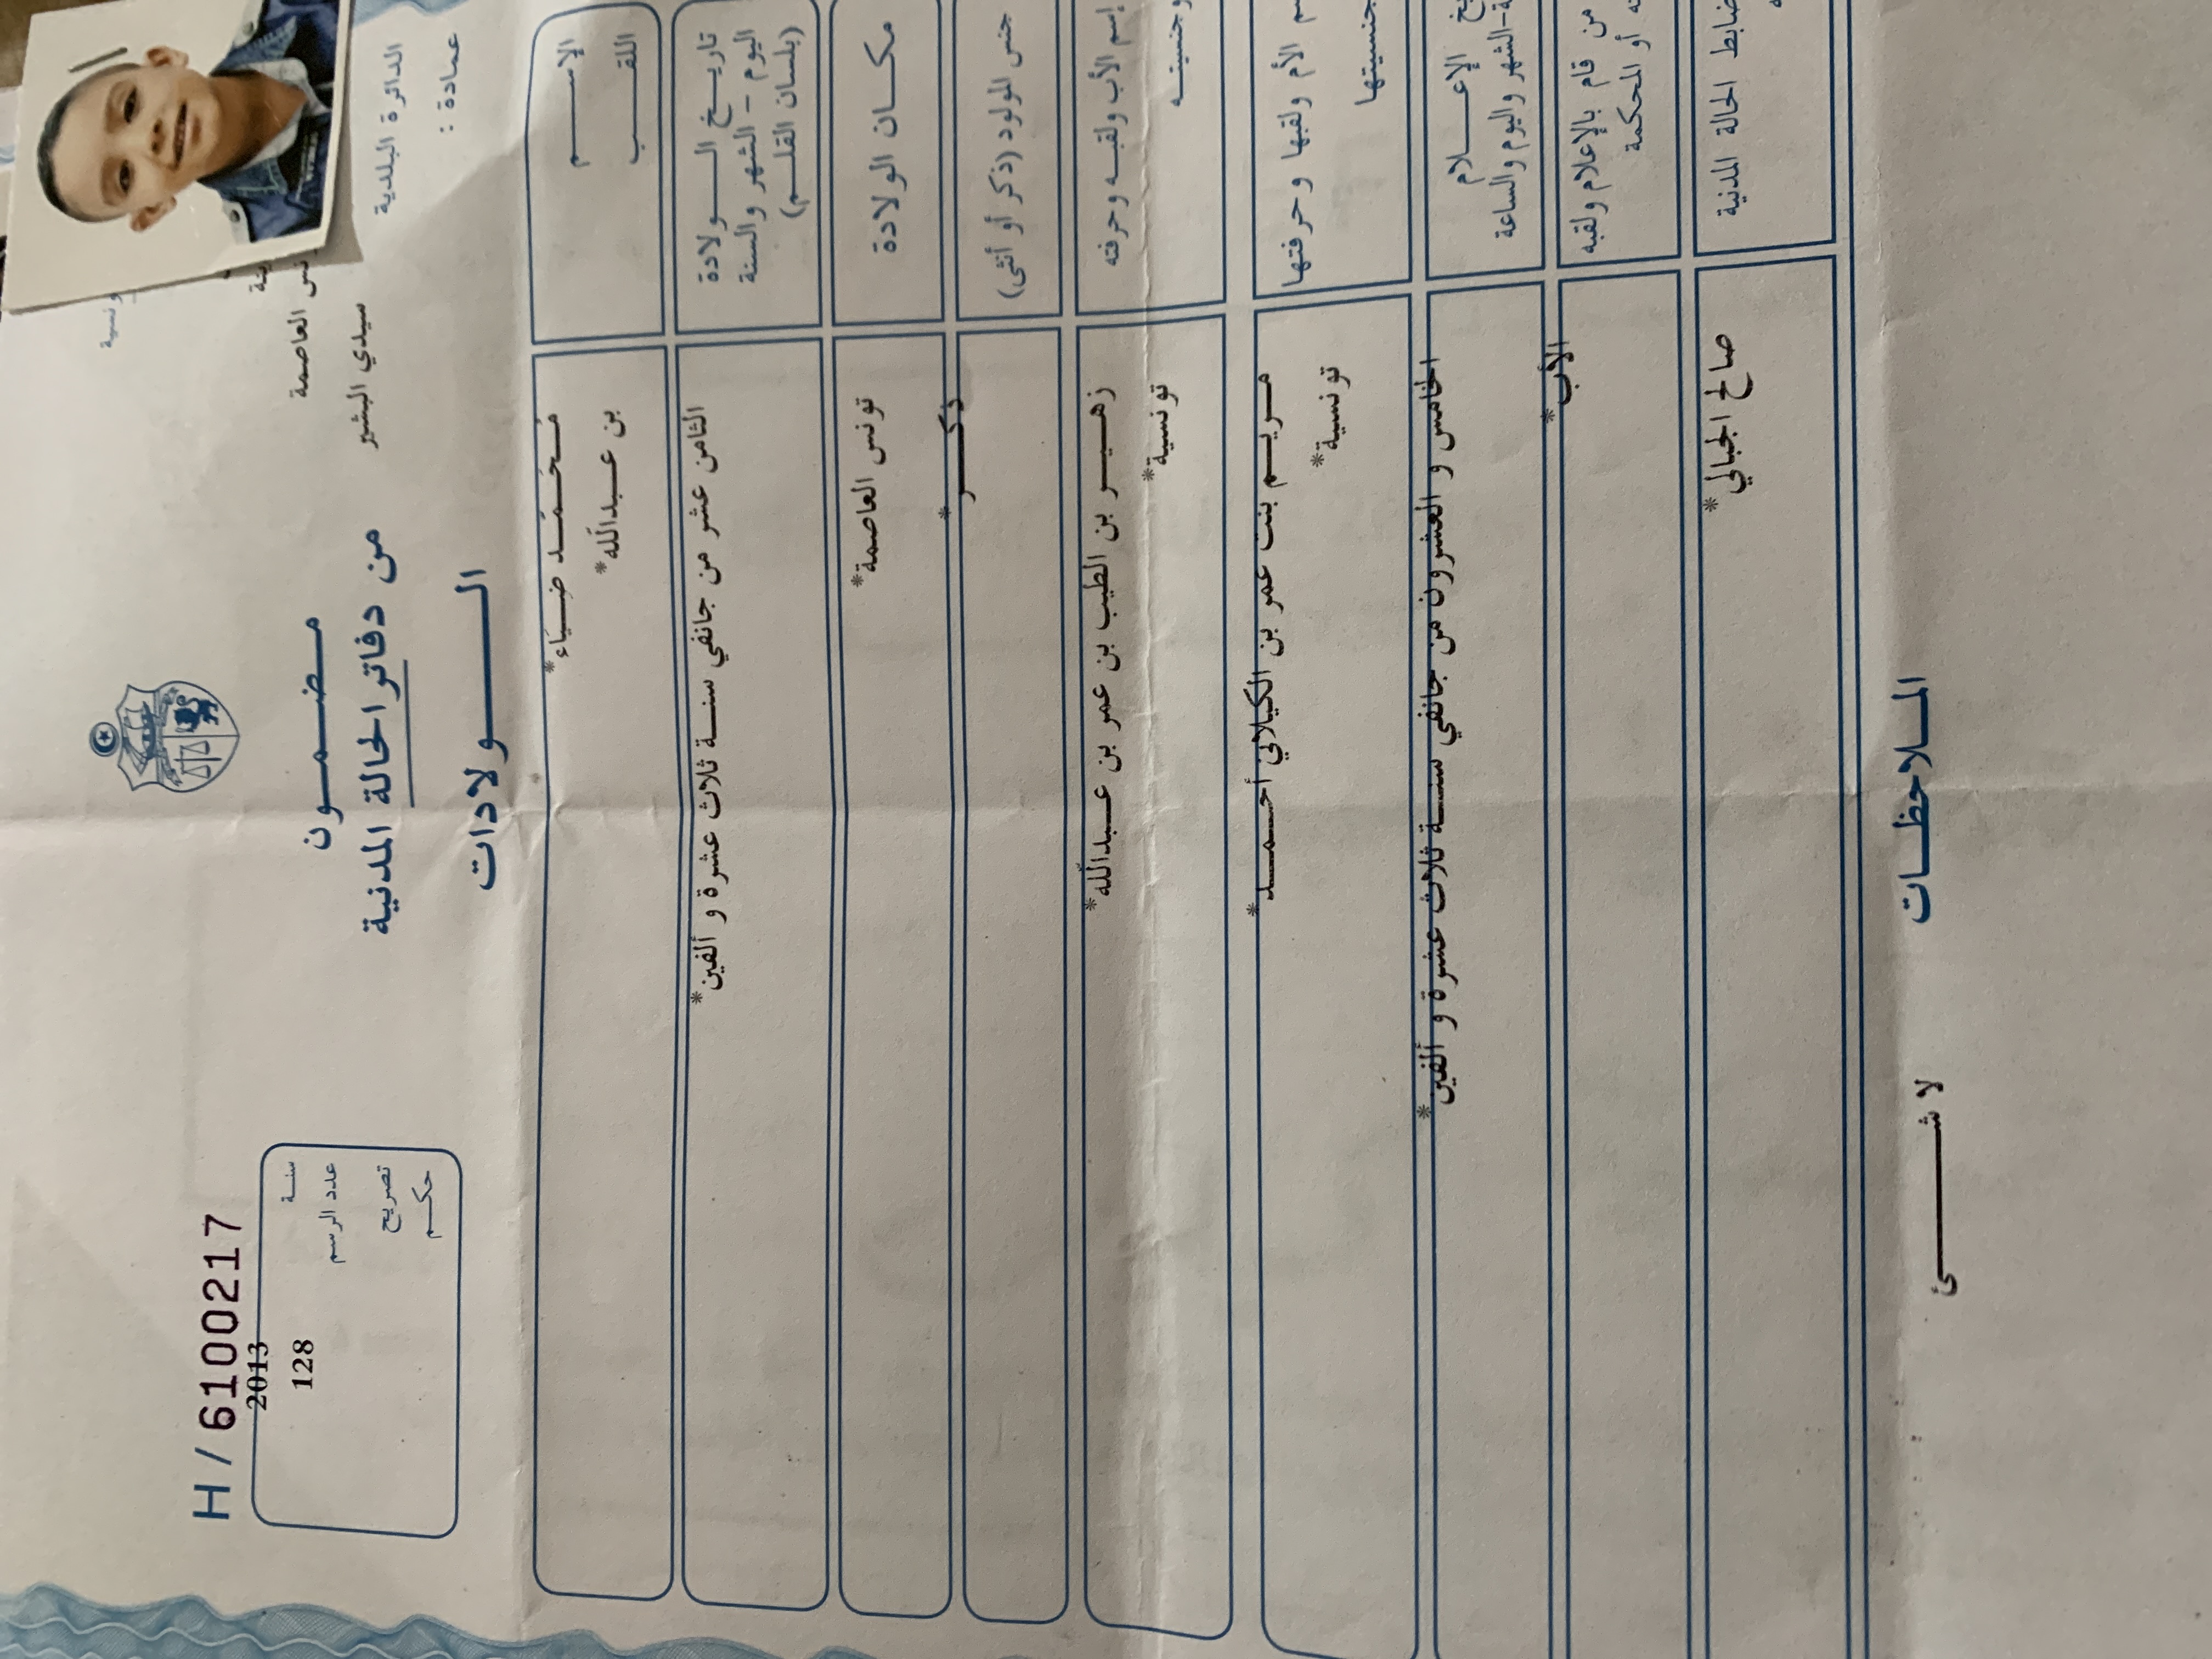 H / 6100217
2013
سنـة
128
عدد الرسم
تصريح
حكـم
مـضـمـون
من دفاتر الحالة المدنية
الـولادات
العاصمة
سيدي البشير
الدائرة البلدية
عمادة :
الإسـم
اللقـب
مُحَمـد ضيَاء*
بن عبدالله*
تاريـخ الـولادة
اليوم - الشهر والسنة
(بلسان القلـم)
الثامن عشر من جانفي سنـة ثلاث عشرة و ألفين*
مكـان الولادة
تونس العاصمة*
جنس المولود (ذكر أو أنثى)
ذكـر*
إسم الأب ولقبـه وحرفته
وجنسيتـه
زهيـر بن الطيب بن عمر بن عبدالله*
تونسية*
الأم ولقبها وحرفتها
جنسيتها
مريـم بنت عمر بن الكيلاني أحمـد*
تونسية*
الإعـلام
الشهر واليوم والساعة
الخامس و العشرون من جانفي سنـة ثلاث عشرة و ألفين*
من قام بالإعلام ولقبه
أو المحكمة
الأب*
ضابط الحالة المدنية
صالح الجبالي*
المـلاحظـات
لا شـئ